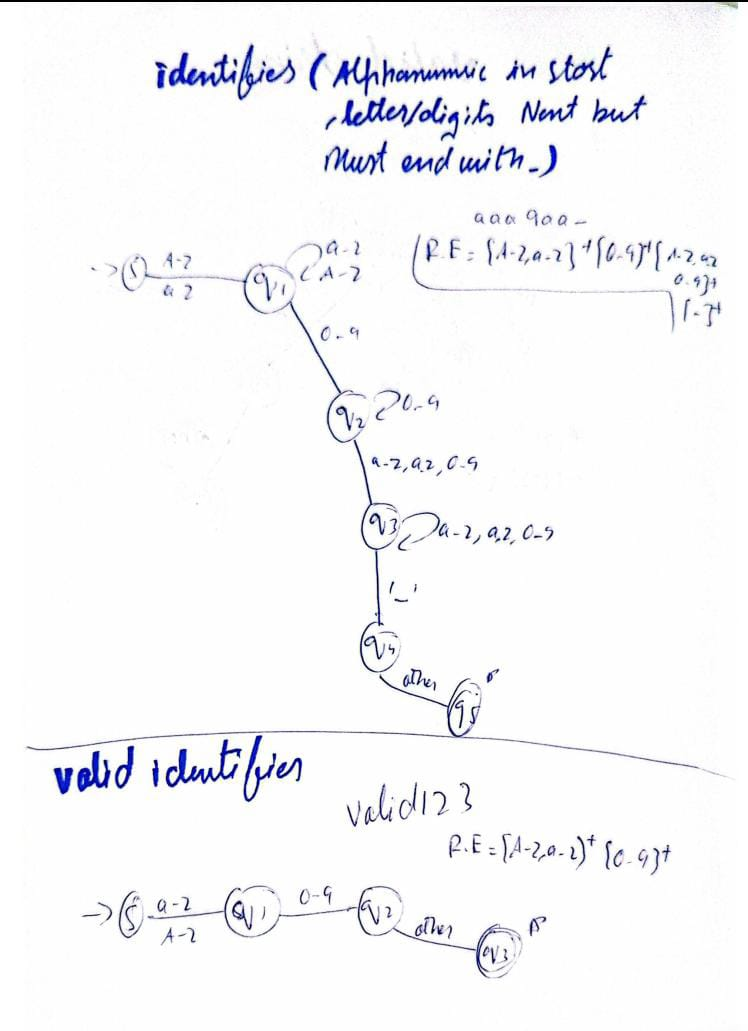 identifies (Alphanumuic in stost
, letter/digits Nent but
Must end with _)
aaa9aa_
R.E = [A-Z,a-z]+[0-9]+[A-Z,a-z
0-9]+
[_]+
→ S
A-Z
a-z
q1
a-z
A-Z
0-9
q2
0-9
a-z, a-z, 0-9
q3
a-z, a-z, 0-9
'_'
q4
other
q5
*
valid identifies
valid123
R.E = [A-Z,a-z]+ [0-9]+
→ S
a-z
A-Z
q1
0-9
q2
other
q3
*